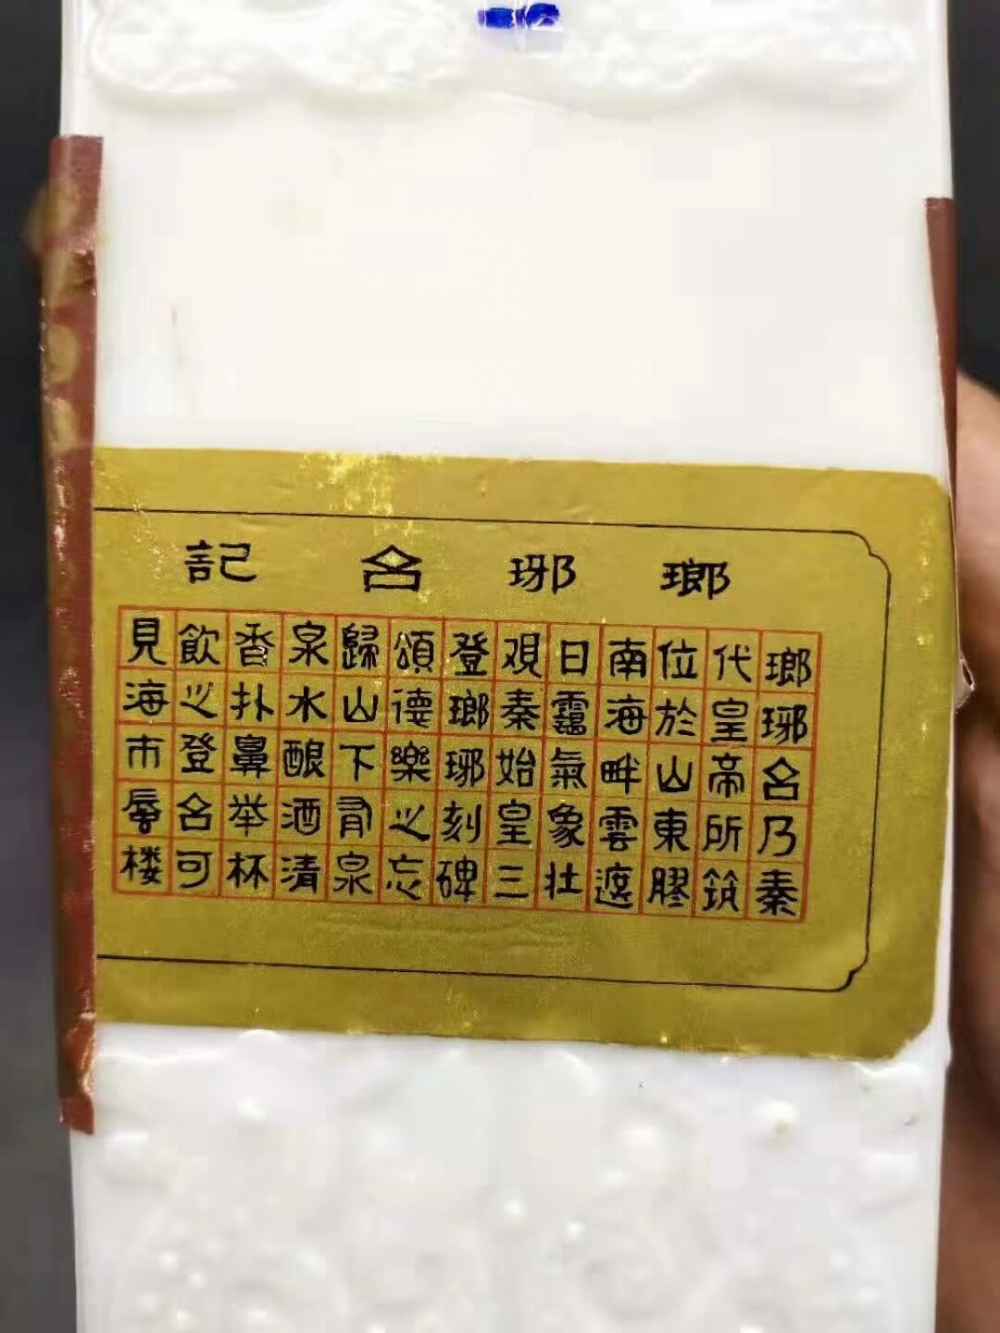 瑯琊台記
瑯琊台乃秦
代皇帝所筑
位於山東膠
南海畔雲遮
日靄氣象壮
观秦始皇三
登瑯琊刻碑
頌德樂之忘
歸山下有泉
泉水酿酒清
香扑鼻举杯
飲之登台可
見海市蜃楼